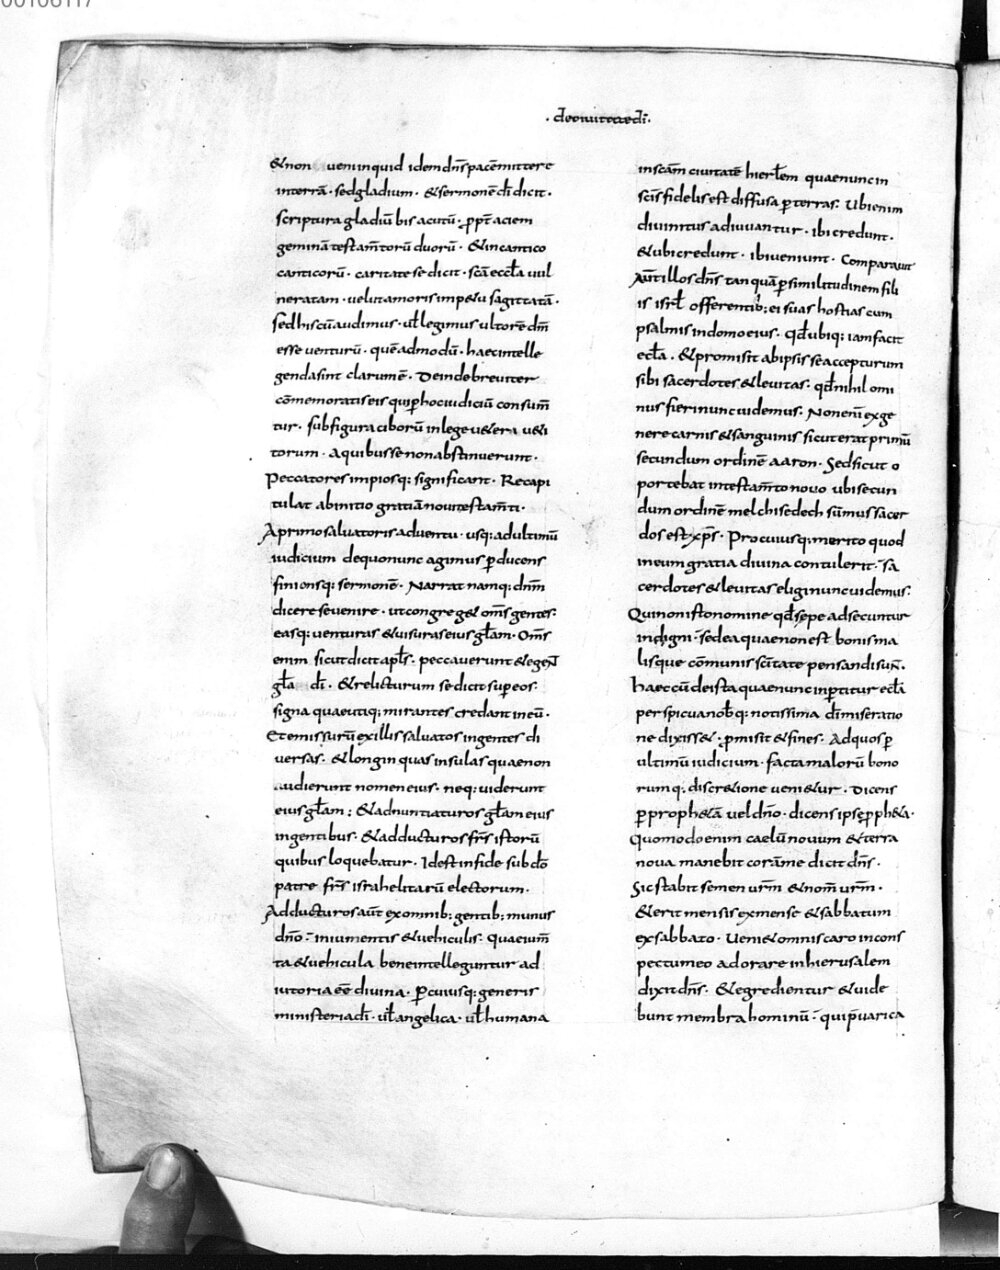 00106117
· deciuitatedī ·
&non ueni inquid idemdn̄spacēmittere
interrā · sedgladium · &sermonēdī dicit ·
scriptura gladiū bis acutū · ꝓpt̄ aciem
geminātestam̄torū duorū · &incantico
canticorū · caritate se dicit · scā eccl̄a uul
neratam · uelutamoris impetu sagittatā ·
sedhiscūaudimus · ul̄legimus ultorē dn̄m
esse uenturū · quēadmodū · haecintelle
gendasint clarumē · Deindebreuiter
cōmemoratiseis quiꝑhociudiciū consum̄
tur · sub figura ciborū inlege uetera ueti
torum · aquibusse nonabstinuerunt ·
Peccatores impiosq; significant · Recapi
tulat abinitio gratiānouitestam̄ti ·
Aprimosaluatoris aduentu · usq; adultimū
iudicium dequonunc agimus ꝑducens
finiensq; sermonē · Narrat namq; dn̄m
dicere seuenire · utcongreg& om̄s gentes ·
easq; uenturas &uisuras eius gl̄am · Om̄s
enim sicut dicit apl̄s · peccauerunt &egen̄
gl̄a dī · &relicturum se dicit suꝑeos ·
signa quaeutiq; mirantes credant ineū ·
Etemissurū exillis saluatos ingentes di
uersas · &longin quas insulas quaenon
audierunt nomen eius · neq; uiderunt
eius gl̄am ; &adnuntiaturos gl̄am eius
ingentibus · &adducturos frs̄ istorū
quibus loquebatur · Idest infide sub dō
patre frs̄ israhelitarū electorum ·
Adducturos aūt exomnib; gentib; munus
dn̄o · iniumentis &uehiculis · Quaeium̄
ta &uehicula beneintelleguntur ad
iutoria eē diuina · ꝑcuiusq; generis
ministeriadī · ul̄angelica · ul̄humana
inscām ciuitatē hierl̄em quaenuncin
scīs fidelis est diffusa ꝑterras · Ubienim
diuinitus adiuuantur · ibi credunt ·
&ubicredunt · ibiueniunt · Comparauit
Aūtillos dn̄s tanquāꝑsimilitudinem fili
is isrl̄ offerentib; ei suas hostias cum
psalmis indomo eius · qd̄ubiq; iamfacit
ecl̄a · &promisit abipsis se accepturum
sibi sacerdotes &leuitas · qd̄nihil omi
nus fierinunc uidemus · Nonenī exge
nere carnis &sanguinis sicut erat primū
secundum ordinē aaron · Sedsicut o
portebat intestam̄to nouo ubisecun
dum ordinē melchisedech sūmussacer
dos est xp̄s · Procuiusq; merito quod
ineum gratia diuina contulerit · sa
cerdotes &leuitas eliginuncuidemus ·
Quinonistonomine qd̄sepe adsecuntur
indigni · sedea quaenonest bonisma
lisque cōmunis scītate pensandisun̄ ·
Haec cū deista quaenunc inꝑtitur ecl̄a
perspicuanob̄q; notissima dī miseratio
ne dixiss& · ꝓmisit &fines · Adquosꝑ
ultimū iudicium · facta malorū bono
rumq; discretione ueni&ur · Dicens
ꝑproph&ā uel dn̄o · dicens ipseꝓph&a ·
Quomodoenim caelū nouum &terra
noua manebit corāme dicit dn̄s ·
Sic stabit semen urm̄ &nom̄ urm̄ ·
&erit mensis exmense &sabbatum
exsabbato · Ueni&omnis caro incons
pectumeo adorare inhierusalem
dixitdn̄s · &egredientur &uide
bunt membra hominū · quip̄uarica